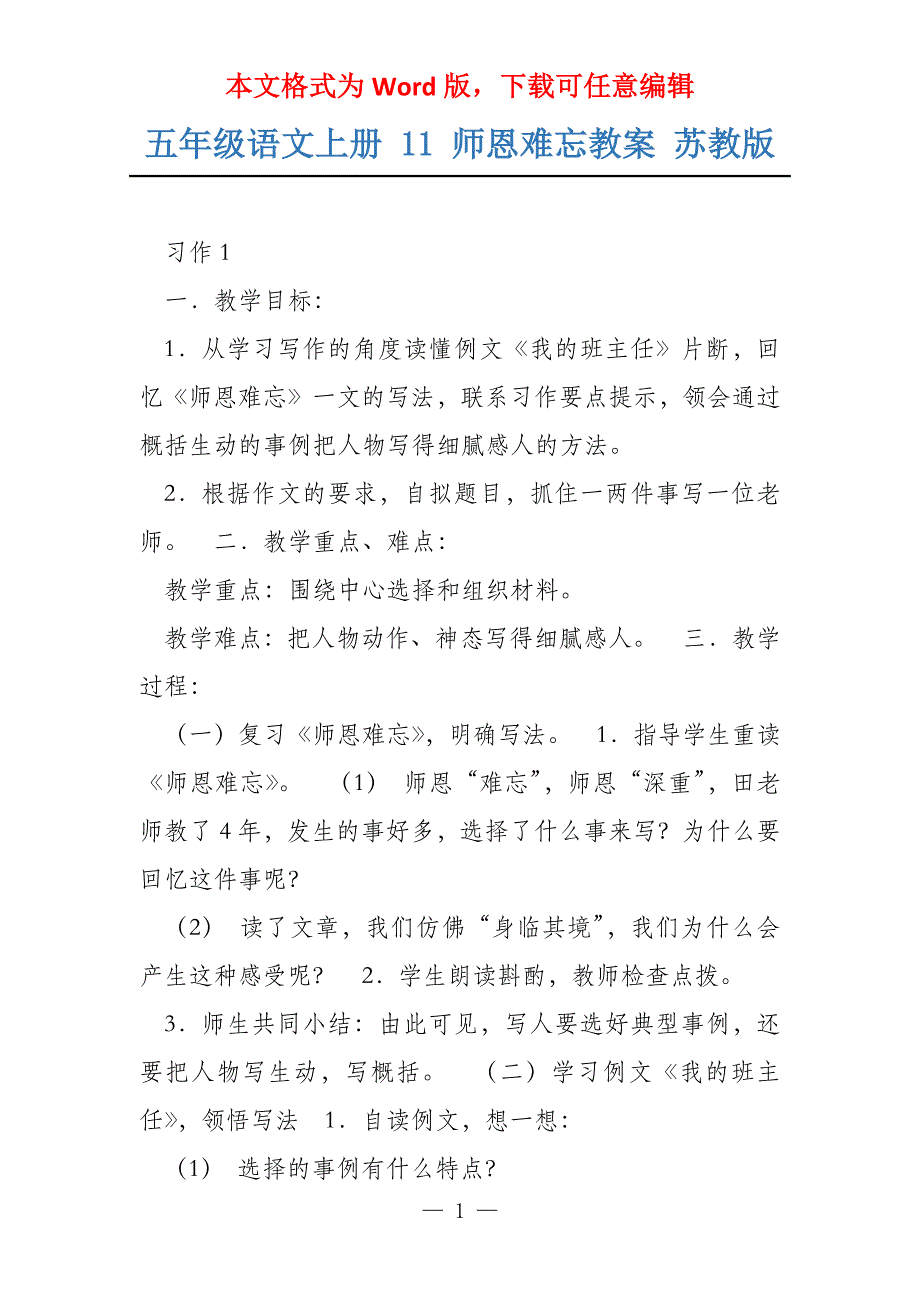 本文格式为 Word 版，下载可任意编辑
五年级语文上册 11 师恩难忘教案 苏教版
习作 1
一．教学目标：
1．从学习写作的角度读懂例文《我的班主任》片断，回
忆《师恩难忘》一文的写法，联系习作要点提示，领会通过
概括生动的事例把人物写得细腻感人的方法。
2．根据作文的要求，自拟题目，抓住一两件事写一位老
师。 二．教学重点、难点：
教学重点：围绕中心选择和组织材料。
教学难点：把人物动作、神态写得细腻感人。 三．教学
过程：
（一）复习《师恩难忘》，明确写法。 1．指导学生重读
《师恩难忘》。 （1） 师恩“难忘”，师恩“深重”，田老
师教了 4 年，发生的事好多，选择了什么事来写？为什么要
回忆这件事呢？
（2） 读了文章，我们仿佛“身临其境”，我们为什么会
产生这种感受呢？ 2．学生朗读斟酌，教师检查点拨。
3．师生共同小结：由此可见，写人要选好典型事例，还
要把人物写生动，写概括。 （二）学习例文《我的班主
任》，领悟写法 1．自读例文，想一想：
（1） 选择的事例有什么特点？
— 1 —